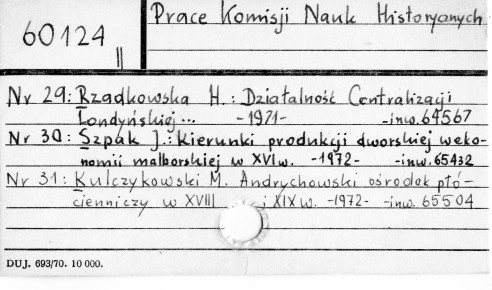 Prace Komisji Nauk Historycznych
60124
II
Nr 29: Rzadkowska H.: Działalność Centralizacji
Londyńskiej... -1971- -inw. 64567
Nr 30: Szpak J.: Kierunki produkcji dworskiej weko-
nomii malborskiej w XVI w. -1972- -inw. 65432
Nr 31: Kulczykowski M. Andrychowski ośrodek płó-
cienniczy w XVIII i XIX w. -1972- -inw. 65504
DUJ. 693/70. 10 000.